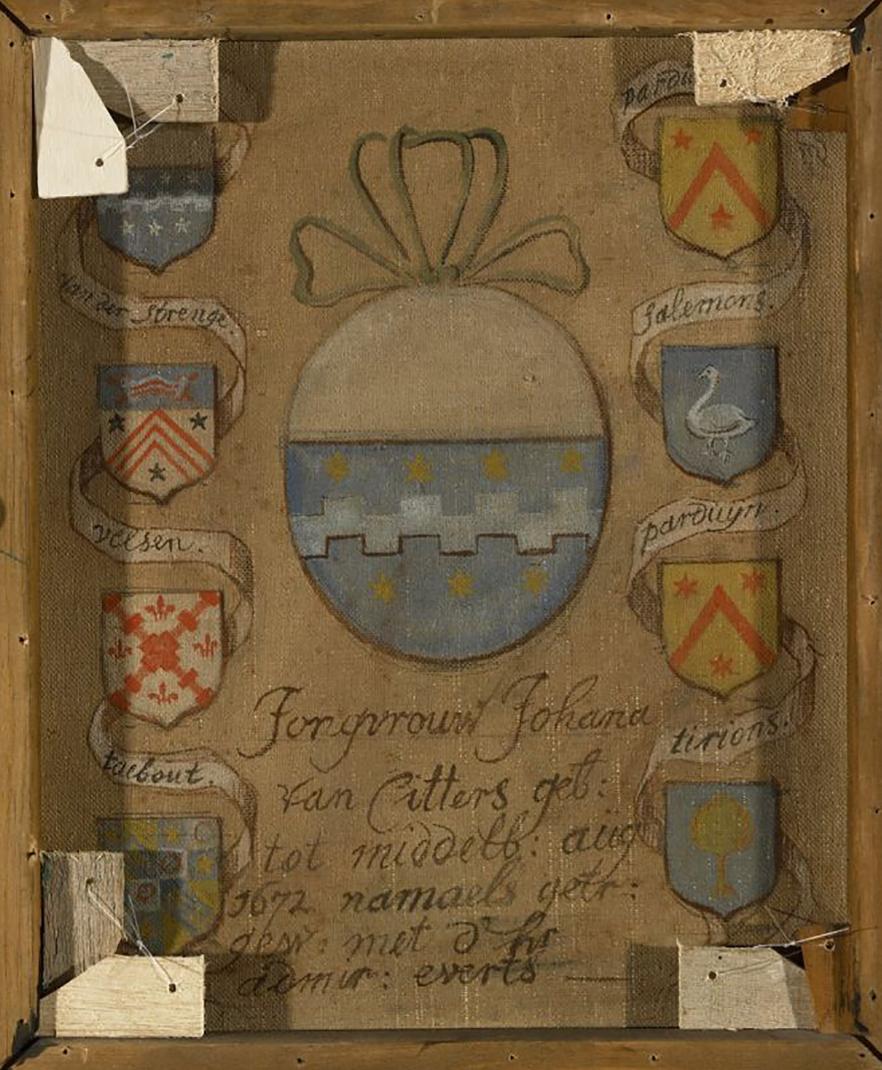 van der strenge.
velsen.
taebout.
pardu
salemons.
parduyn.
tirions.
Jongvrouw Johana
van Citters geb:
tot middelb: aug
1672 namaels getr:
gew: met d'hr
admir: everts